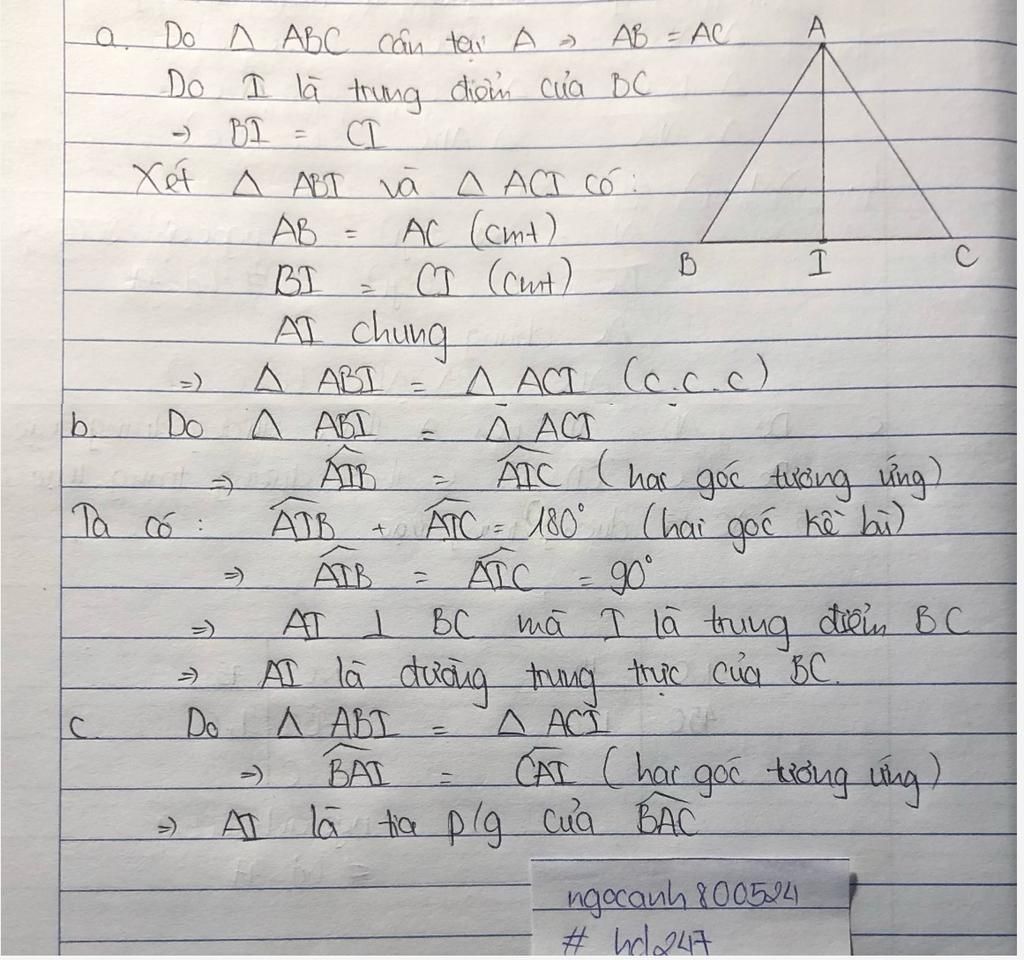 a. Do Δ ABC cân tại A => AB = AC
Do I là trung điểm của BC
=> BI = CI
Xét Δ ABI và Δ ACI có:
AB = AC (cmt)
BI = CI (cmt)
AI chung
=> Δ ABI = Δ ACI (c.c.c)
b. Do Δ ABI = Δ ACI
=> \widehat{AIB} = \widehat{AIC} (hai góc tương ứng)
Ta có: \widehat{AIB} + \widehat{AIC} = 180° (hai góc kề bù)
=> \widehat{AIB} = \widehat{AIC} = 90°
=> AI ⊥ BC mà I là trung điểm BC
=> AI là đường trung trực của BC.
c. Do Δ ABI = Δ ACI
=> \widehat{BAI} = \widehat{CAI} (hai góc tương ứng)
=> AI là tia p/g của \widehat{BAC}
A
B I C
ngocanh800524
# hd247